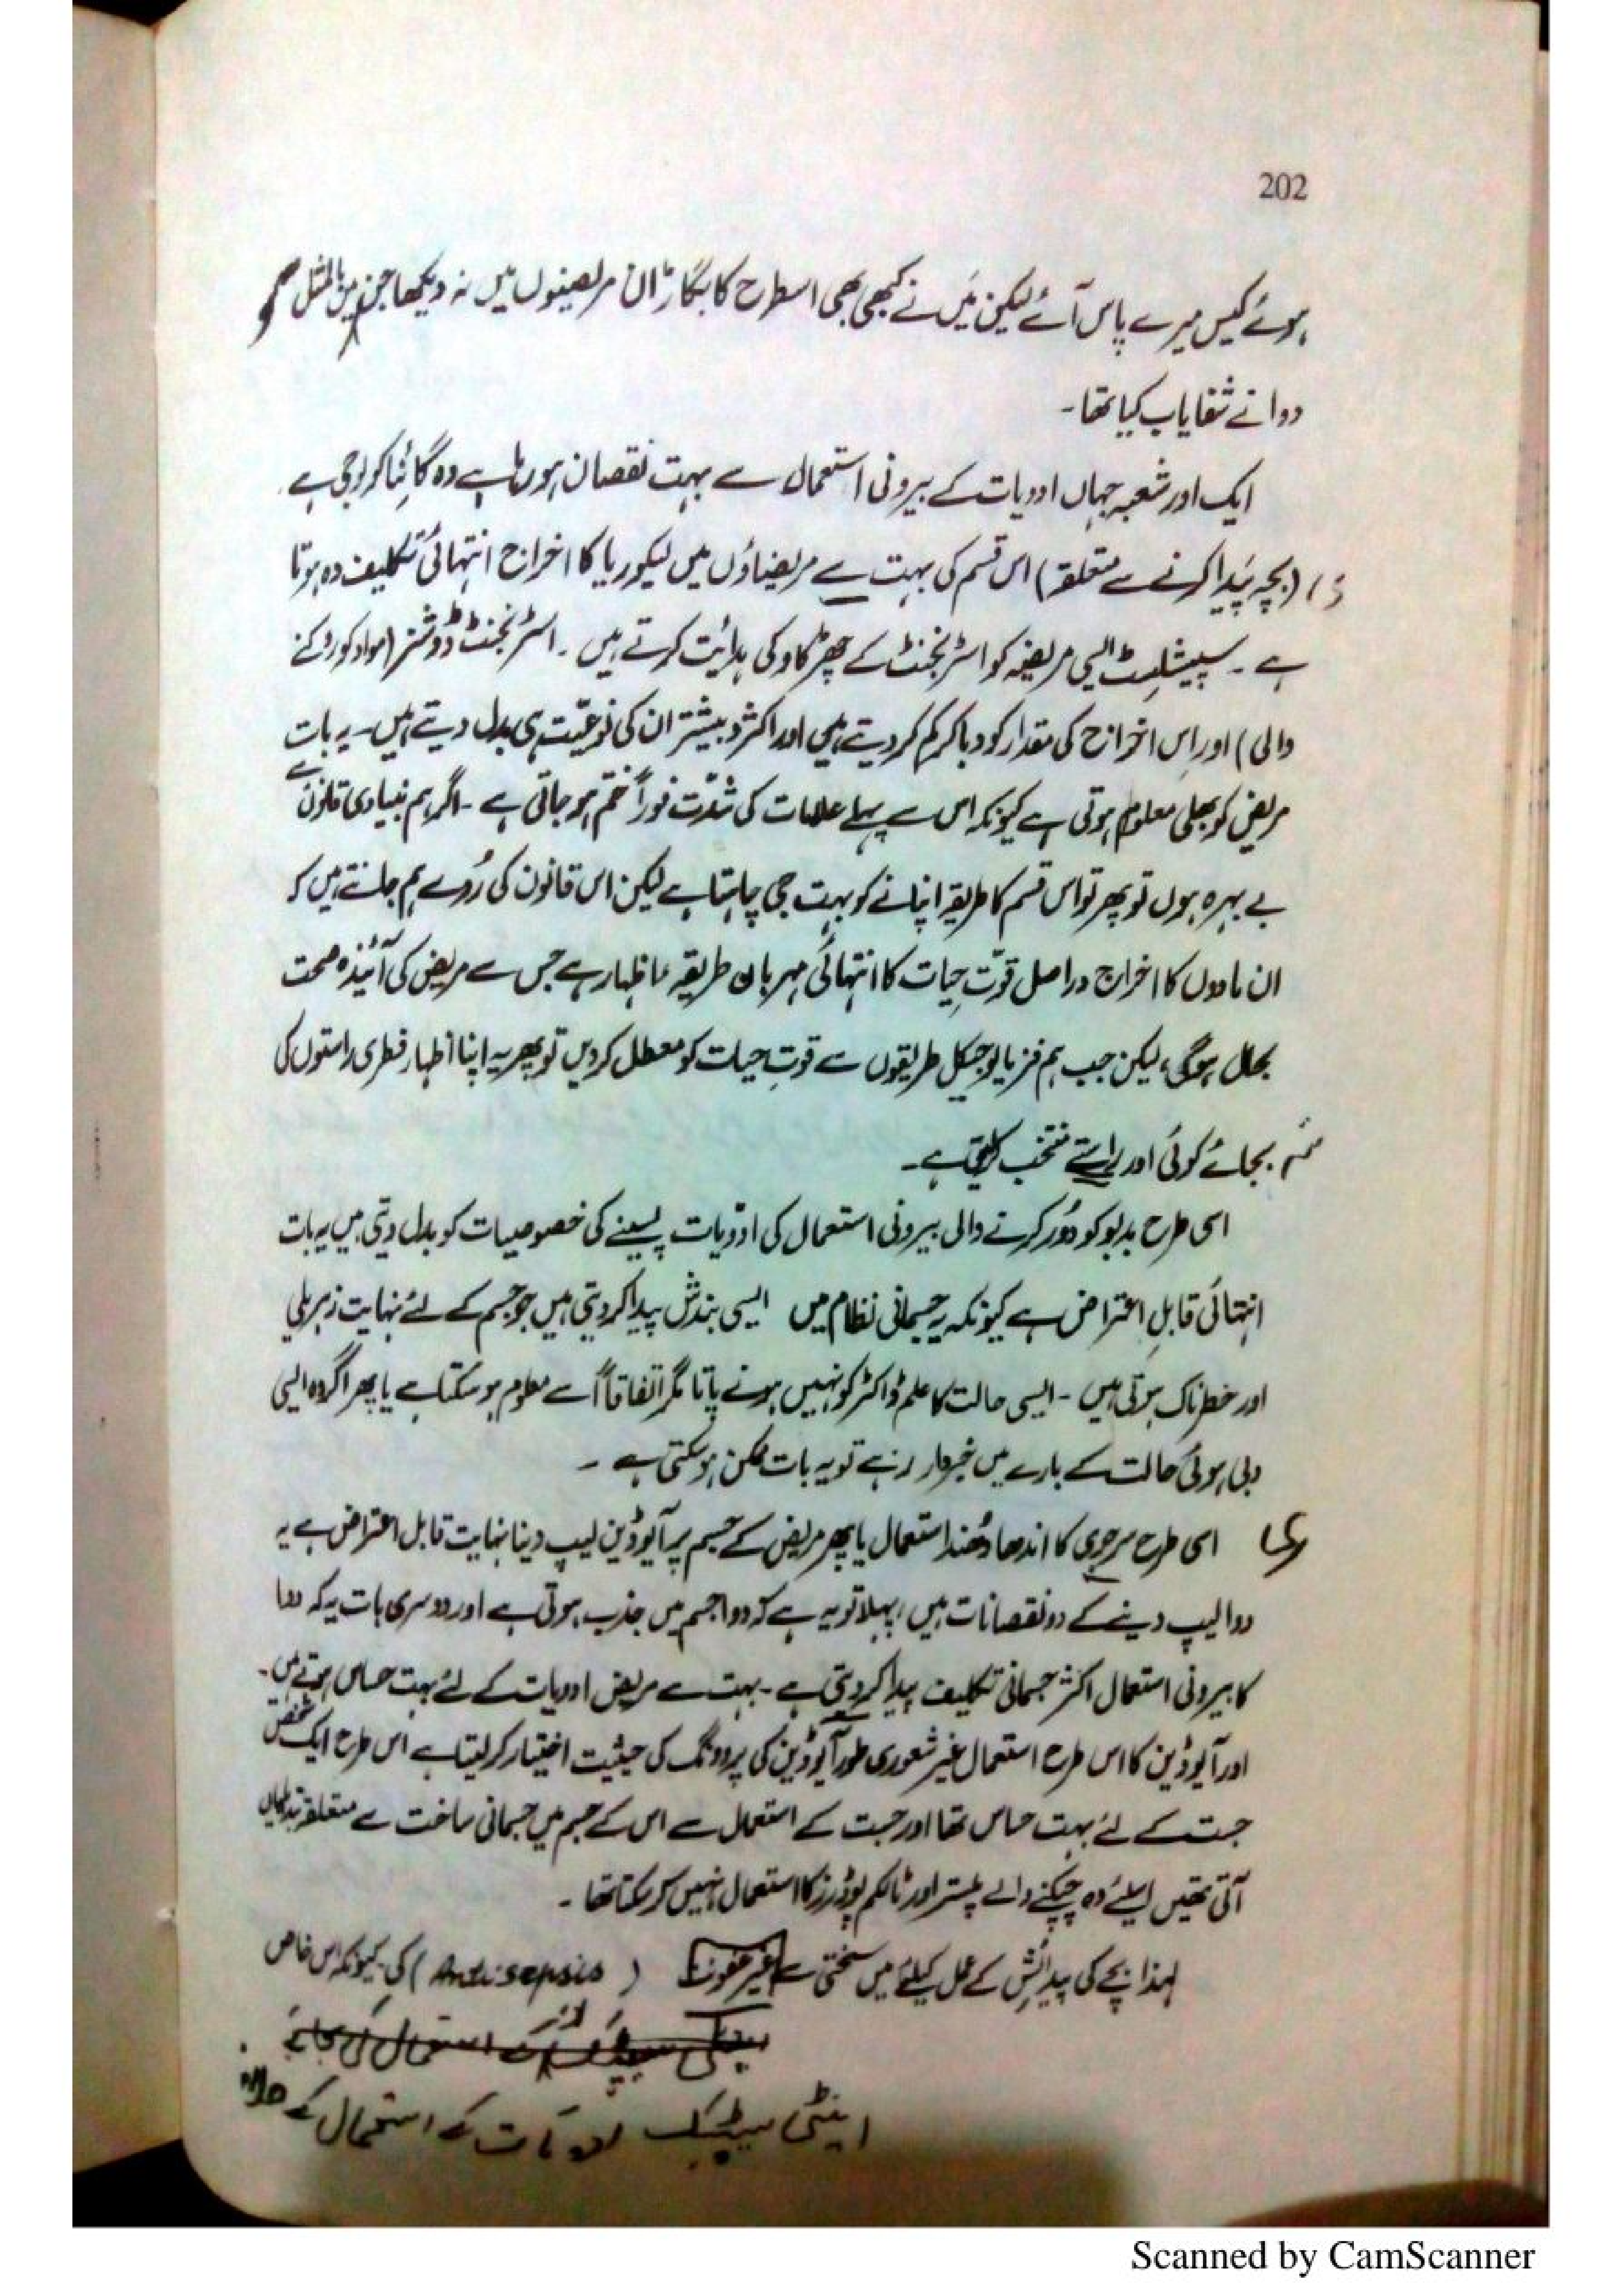 202
ہوئے کیس میرے پاس آئے لیکن میں نے کبھی بھی اسطرح کا بگاڑ ان مریضوں میں نہ دیکھا جن بالمثل
دوا نے شفایاب کیا تھا۔
ایک اور شعبہ جہاں ادویات کے بیرونی استعمال سے بہت نقصان ہو رہا ہے وہ گائنا کولوجی ہے
(بچہ پیدا کرنے سے متعلقہ) اس قسم کی بہت سے مریضاؤں میں لیکوریا کا اخراج انتہائی تکلیف دہ ہوتا
ہے ۔ سپیشلسٹ ایسی مریضہ کو اسٹرنجنٹ کے چھڑکاو کی ہدائیت کرتے ہیں ۔ اسٹرنجنٹ ڈوشز (مواد کو روکنے
والی) اور اس اخراج کی مقدار کو دبا کر کم کر دیتے ہیں اور اکثر و بیشتر ان کی نوعیّت ہی بدل دیتے ہیں۔ یہ بات
مریض کو بھلی معلوم ہوتی ہے کیونکہ اس سے پہلے علامات کی شدّت فوراً ختم ہو جاتی ہے ۔ اگر ہم بنیادی قانون سے
بے بہرہ ہوں تو پھر تو اس قسم کا طریقہ اپنانے کو بہت جی چاہتا ہے لیکن اس قانون کی رُو سے ہم جانتے ہیں کہ
ان مادوں کا اخراج دراصل قوّتِ حیات کا انتہائی مہربان طریقہ اظہار ہے جس سے مریض کی آئندہ صحت
بحال ہو گی، لیکن جب ہم فزیالوجیکل طریقوں سے قوتِ حیات کو معطل کر دیں تو پھر یہ اپنا اظہار فطری راستوں کی
بجائے کوئی اور راستے منتخب کرتی ہے۔
اسی طرح بدبو کو دُور کرنے والی بیرونی استعمال کی ادوّیات پسینے کی خصوصیات کو بدل دیتی ہیں یہ بات
انتہائی قابلِ اعتراض ہے کیونکہ یہ جسمانی نظام میں ایسی بندش پیدا کر دیتی ہیں جو جسم کے لئے نہایت زہریلی
اور خطرناک ہوتی ہیں ۔ ایسی حالت کا علم ڈاکٹر کو نہیں ہونے پاتا مگر اتفاقاً اسے معلوم ہو سکتا ہے یا پھر اگر وہ ایسی
دبی ہوئی حالت کے بارے میں خبردار رہے تو یہ بات ممکن ہو سکتی ہے ۔
اسی طرح سرجری کا اندھا دُھند استعمال یا پھر مریض کے جسم پر آیوڈین لیپ دینا نہایت قابل اعتراض ہے یہ
دوا لیپ دینے کے دو نقصانات ہیں، پہلا تو یہ ہے کہ دوا جسم میں جذب ہوتی ہے اور دوسری بات یہ کہ دوا
کا بیرونی استعمال اکثر جسمانی تکلیف پیدا کر دیتی ہے ۔ بہت سے مریض ادویات کے لئے بہت حساس ہوتے ہیں۔
اور آیوڈین کا اس طرح استعمال غیر شعوری طور آیوڈین کی پروونگ کی حیثیت اختیار کر لیتا ہے اس طرح ایک شخص
جست کے لئے بہت حساس تھا اور جست کے استعمال سے اس کے جسم میں جسمانی ساخت سے متعلقہ تبدیلیاں
آتی تھیں اسلئے وہ چپکنے والے پلستر اور ٹالکم پوڈرز کا استعمال نہیں کر سکتا تھا ۔
لہذا بچے کی پیدائش کے عمل کیلئے میں سختی سے غیر عفونت (Antisepsis) کی کیونکہ اس خاص
اینٹی سپٹیک ادویات کے استعمال کے خلاف
Scanned by CamScanner